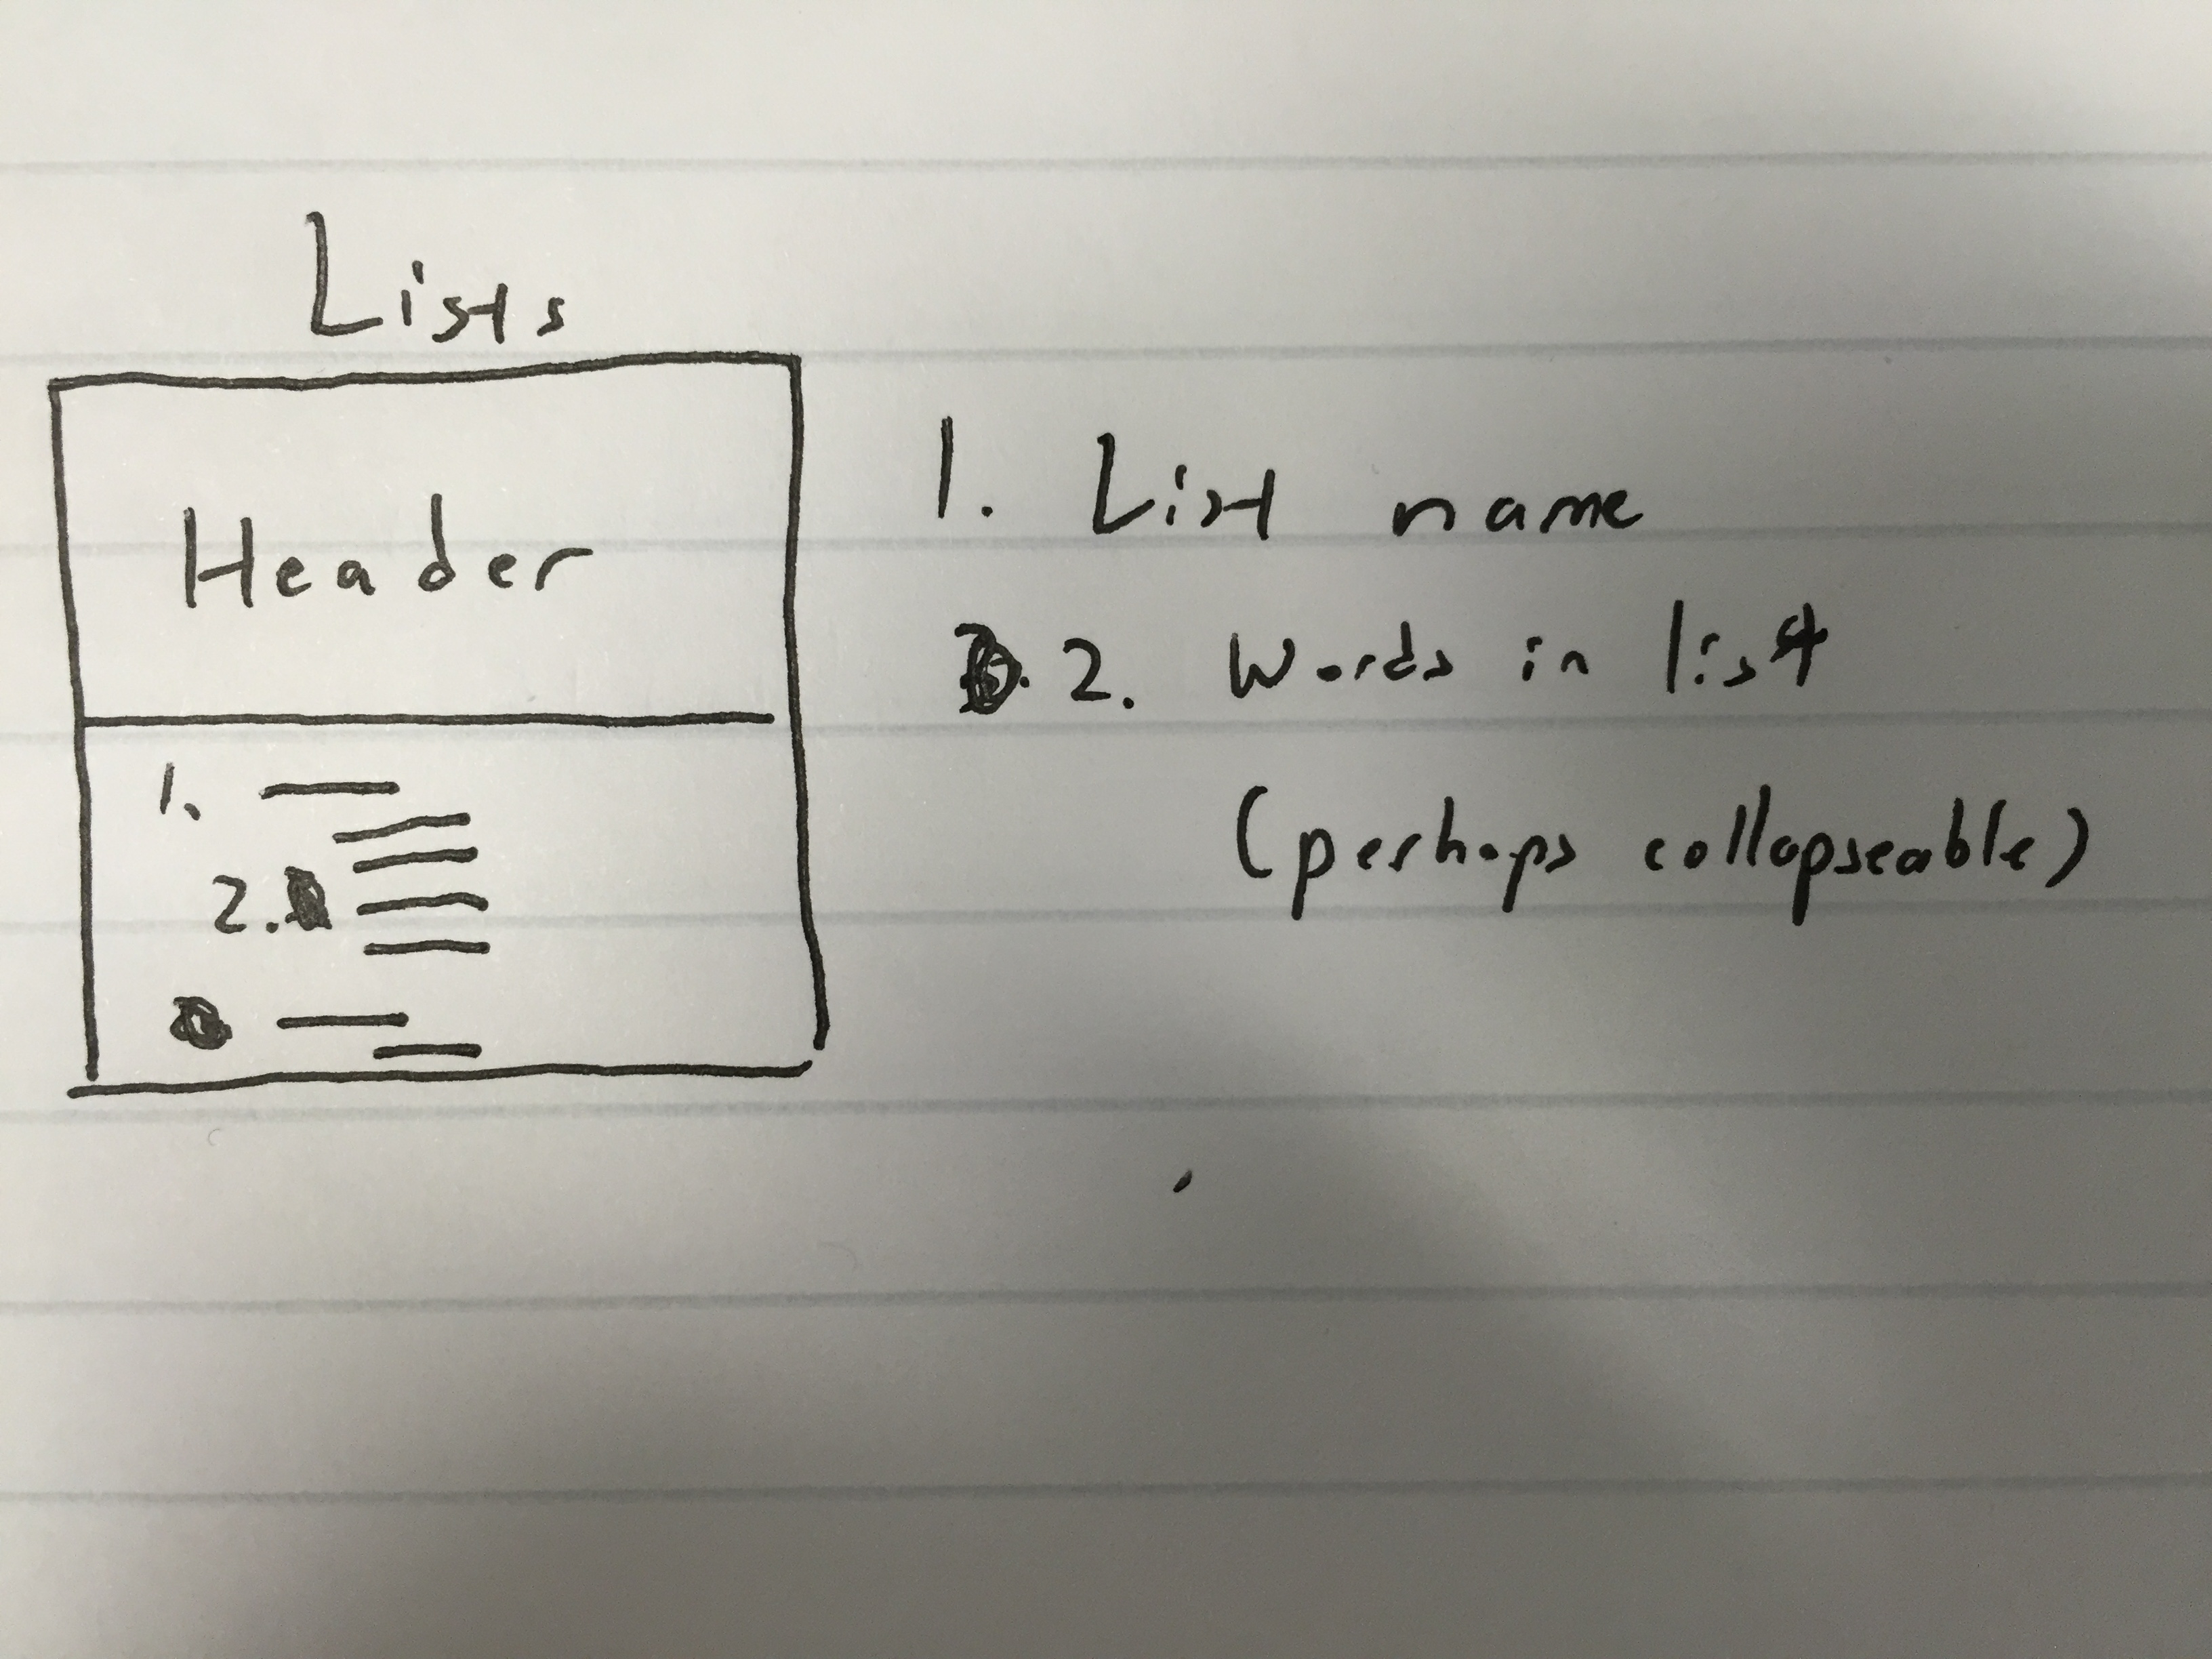 Lists
Header
1.
2.
1. List name
2. Words in list
(perhaps collapseable)